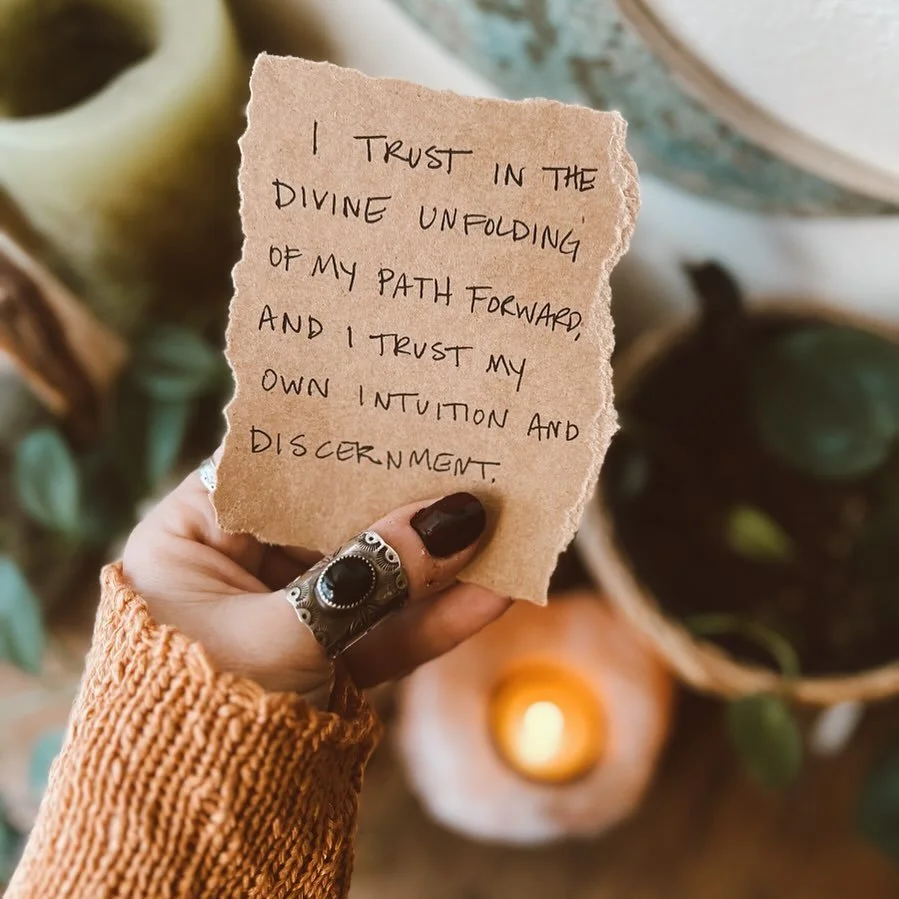 I TRUST IN THE
DIVINE UNFOLDING
OF MY PATH FORWARD,
AND I TRUST MY
OWN INTUITION AND
DISCERNMENT.